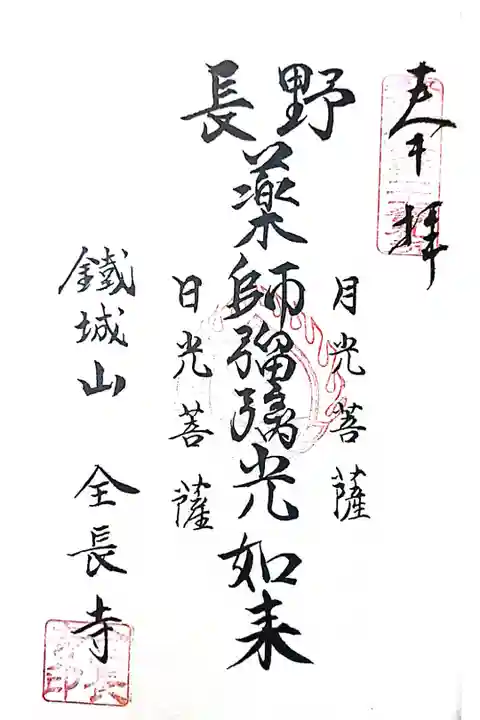 奉拝
月光菩薩
野長
薬師瑠璃光如来
日光菩薩
鐵城山 全長寺